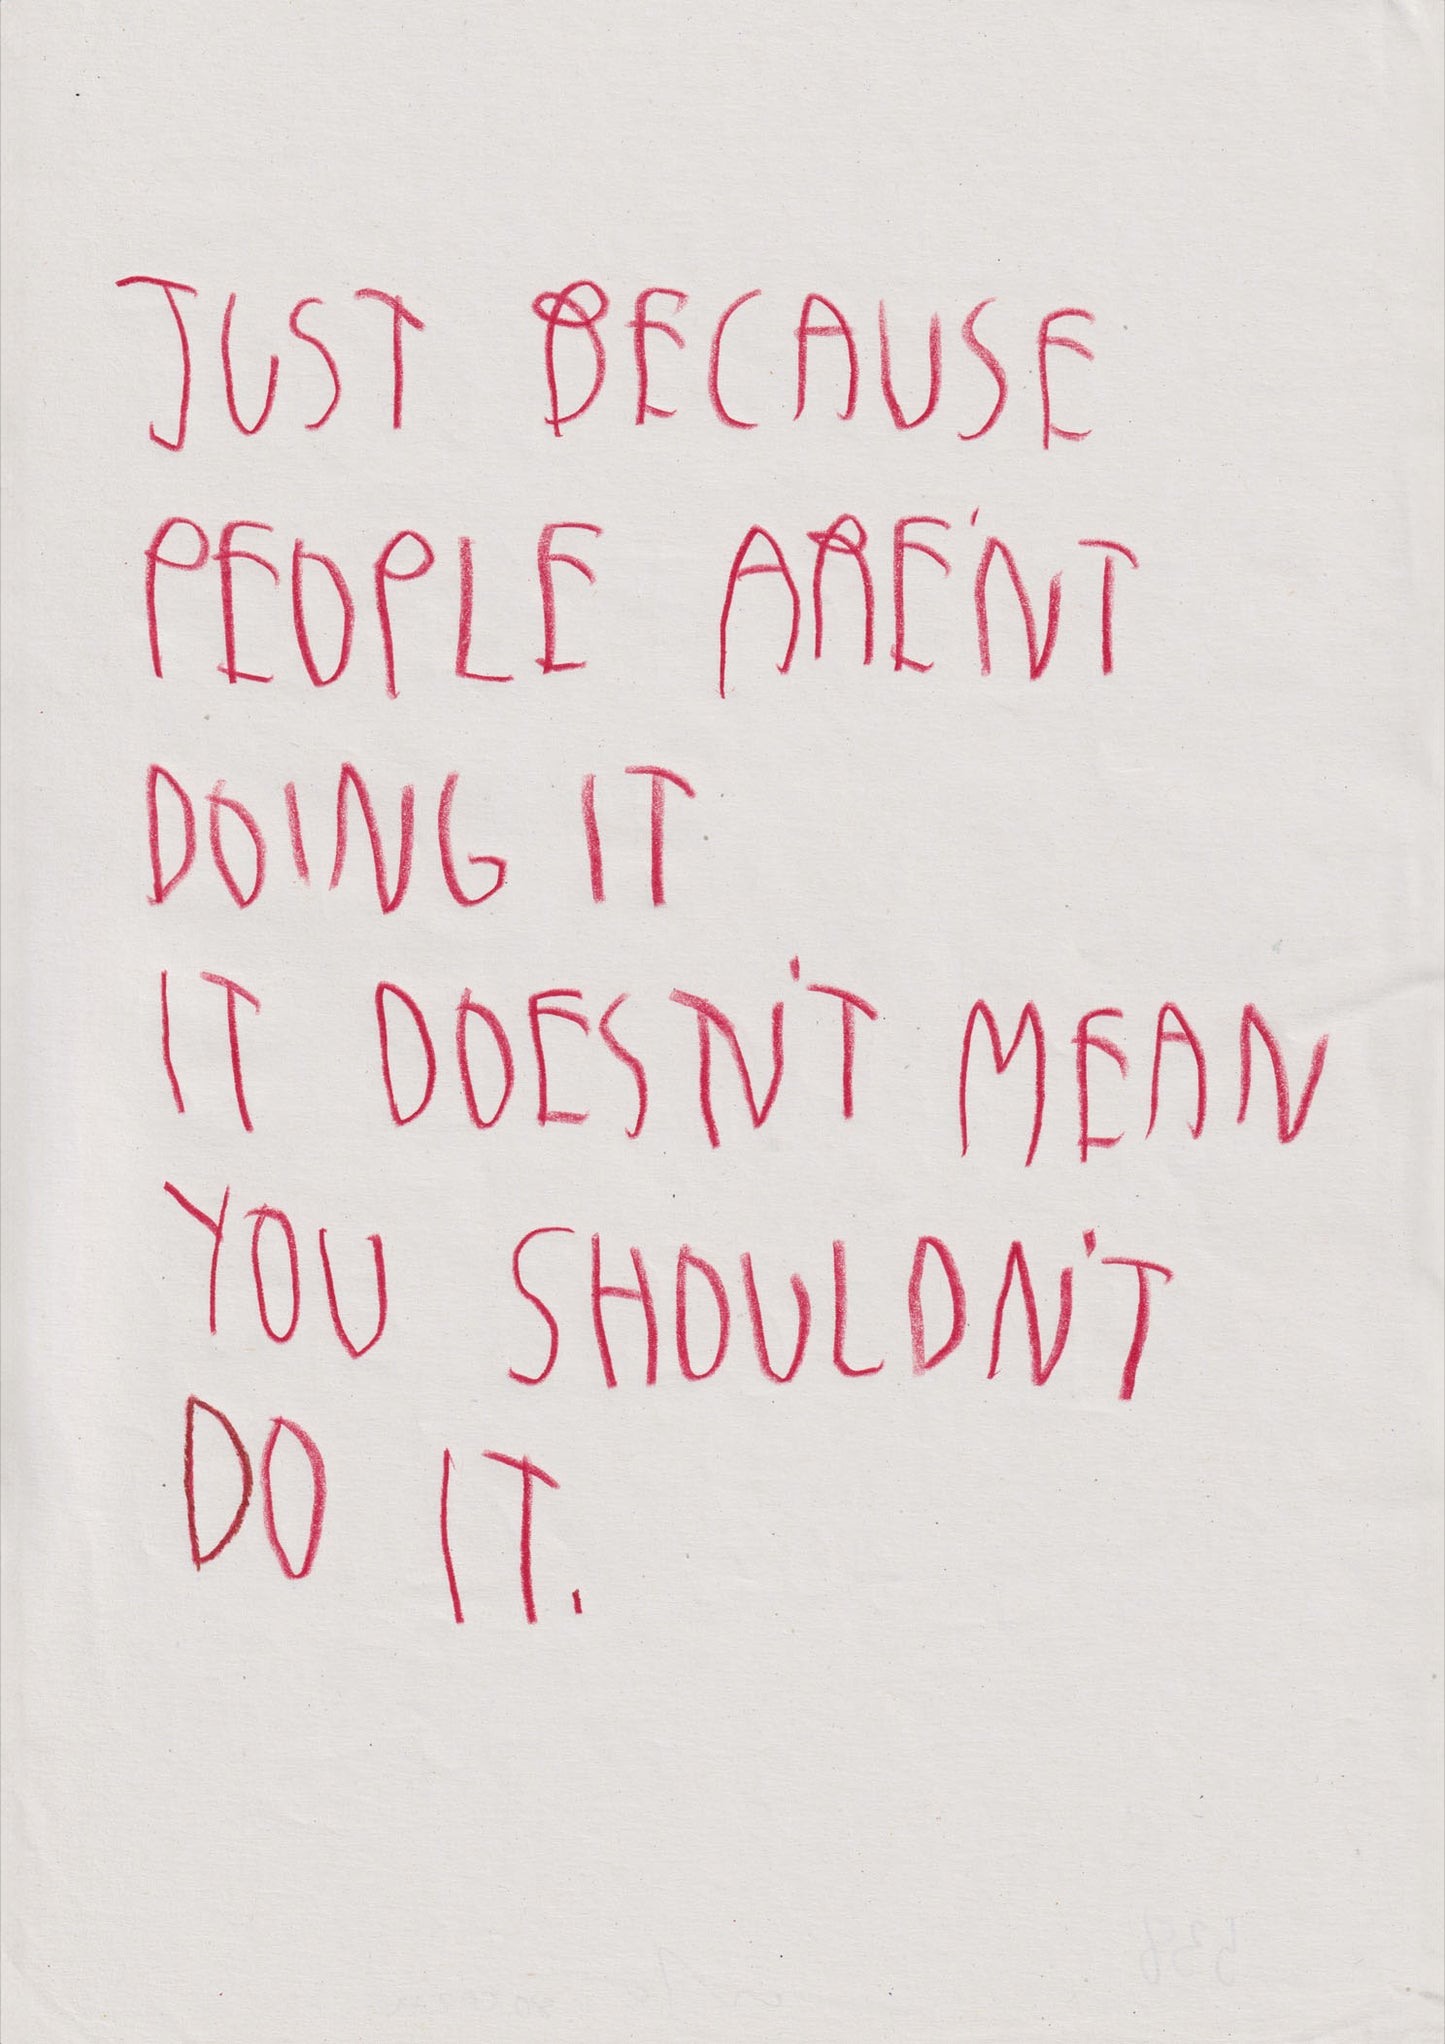 JUST BECAUSE
PEOPLE AREN'T
DOING IT
IT DOESN'T MEAN
YOU SHOULDN'T
DO IT.